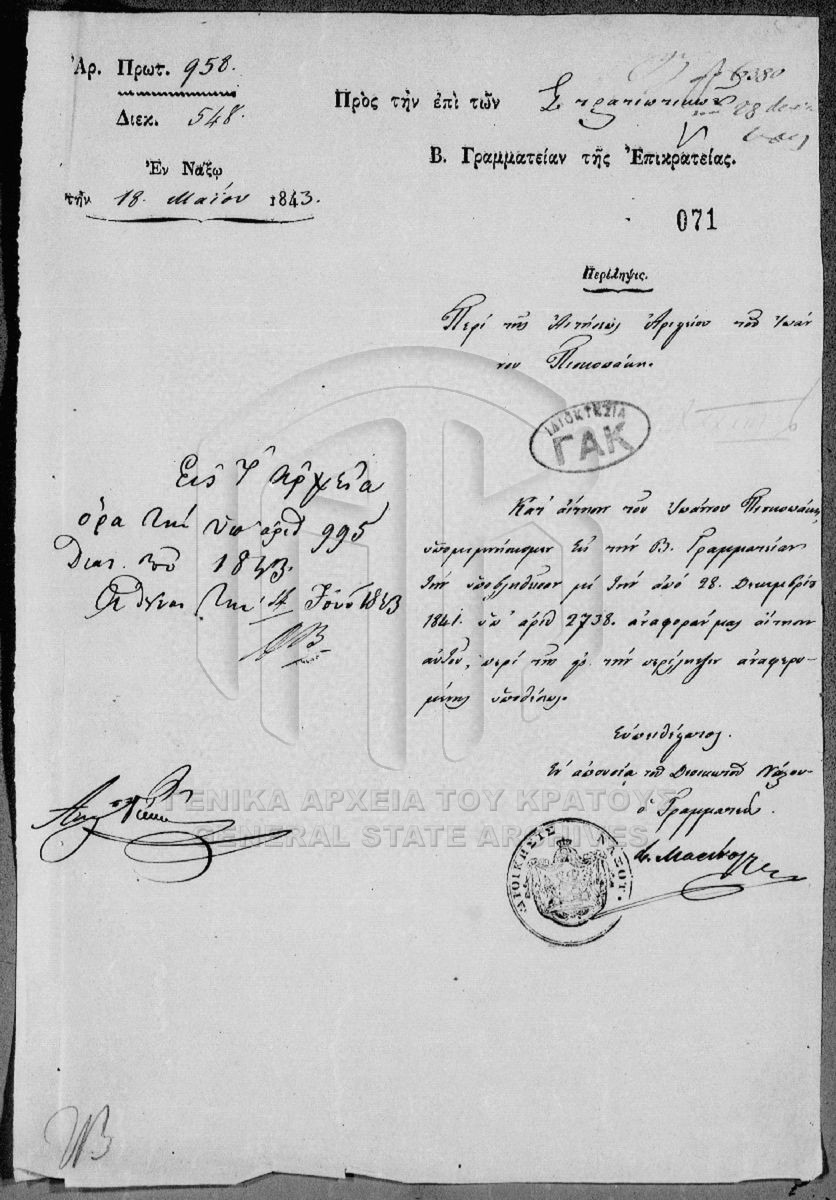 Ἀρ. Πρωτ. 958.
Διεκ. 548.
Ἐν Νάξῳ
τὴν 18. Μαΐου 1843.
6380
28
Πρὸς τὴν ἐπὶ τῶν Στρατιωτικῶν
Β. Γραμματείαν τῆς Ἐπικρατείας.
071
Περίληψις.
Περὶ τῆς Αἰτήσεως Ἀριστείου τοῦ Ἰωάν
νου Πισκοπάκη.
ΙΔΙΟΚΤΗΣΙΑ
ΓΑΚ
Εἰς τ' Ἀρχεῖα
ὅρα τὴν ὑπ' ἀριθ 995
Διατ. τοῦ 1843.
Ἀθήνας τὴν 4 Ἰουν 1843
Κατ' αἴτησιν τοῦ Ἰωάννου Πισκοπάκη,
ὑπομιμνήσκομεν εἰς τὴν Β. Γραμματείαν
τὴν ὑποβληθεῖσαν μὲ τὴν ἀπὸ 28. Δεκεμβρίου
1841. ὑπ' ἀριθ 2738. ἀναφοράν μας αἴτησιν
αὐτοῦ, περὶ τῆς εἰς τὴν περίληψιν ἀναφερο-
μένης ὑποθέσεως.
Εὐπειθέστατος.
Ἐν ἀπουσίᾳ τοῦ Διοικητοῦ Νάξου
ὁ Γραμματεὺς
ΓΕΝΙΚΑ ΑΡΧΕΙΑ ΤΟΥ ΚΡΑΤΟΥΣ
GENERAL STATE ARCHIVES
ΔΙΟΙΚΗΣΙΣ ΝΑΞΟΥ.